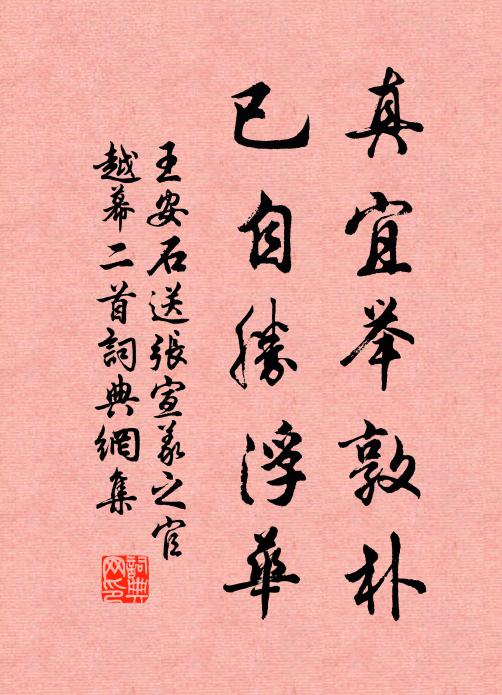 真宜举敦朴
已自勝浮華
王安石送張宣義之官
越幕二首詞典網集
詞典网印